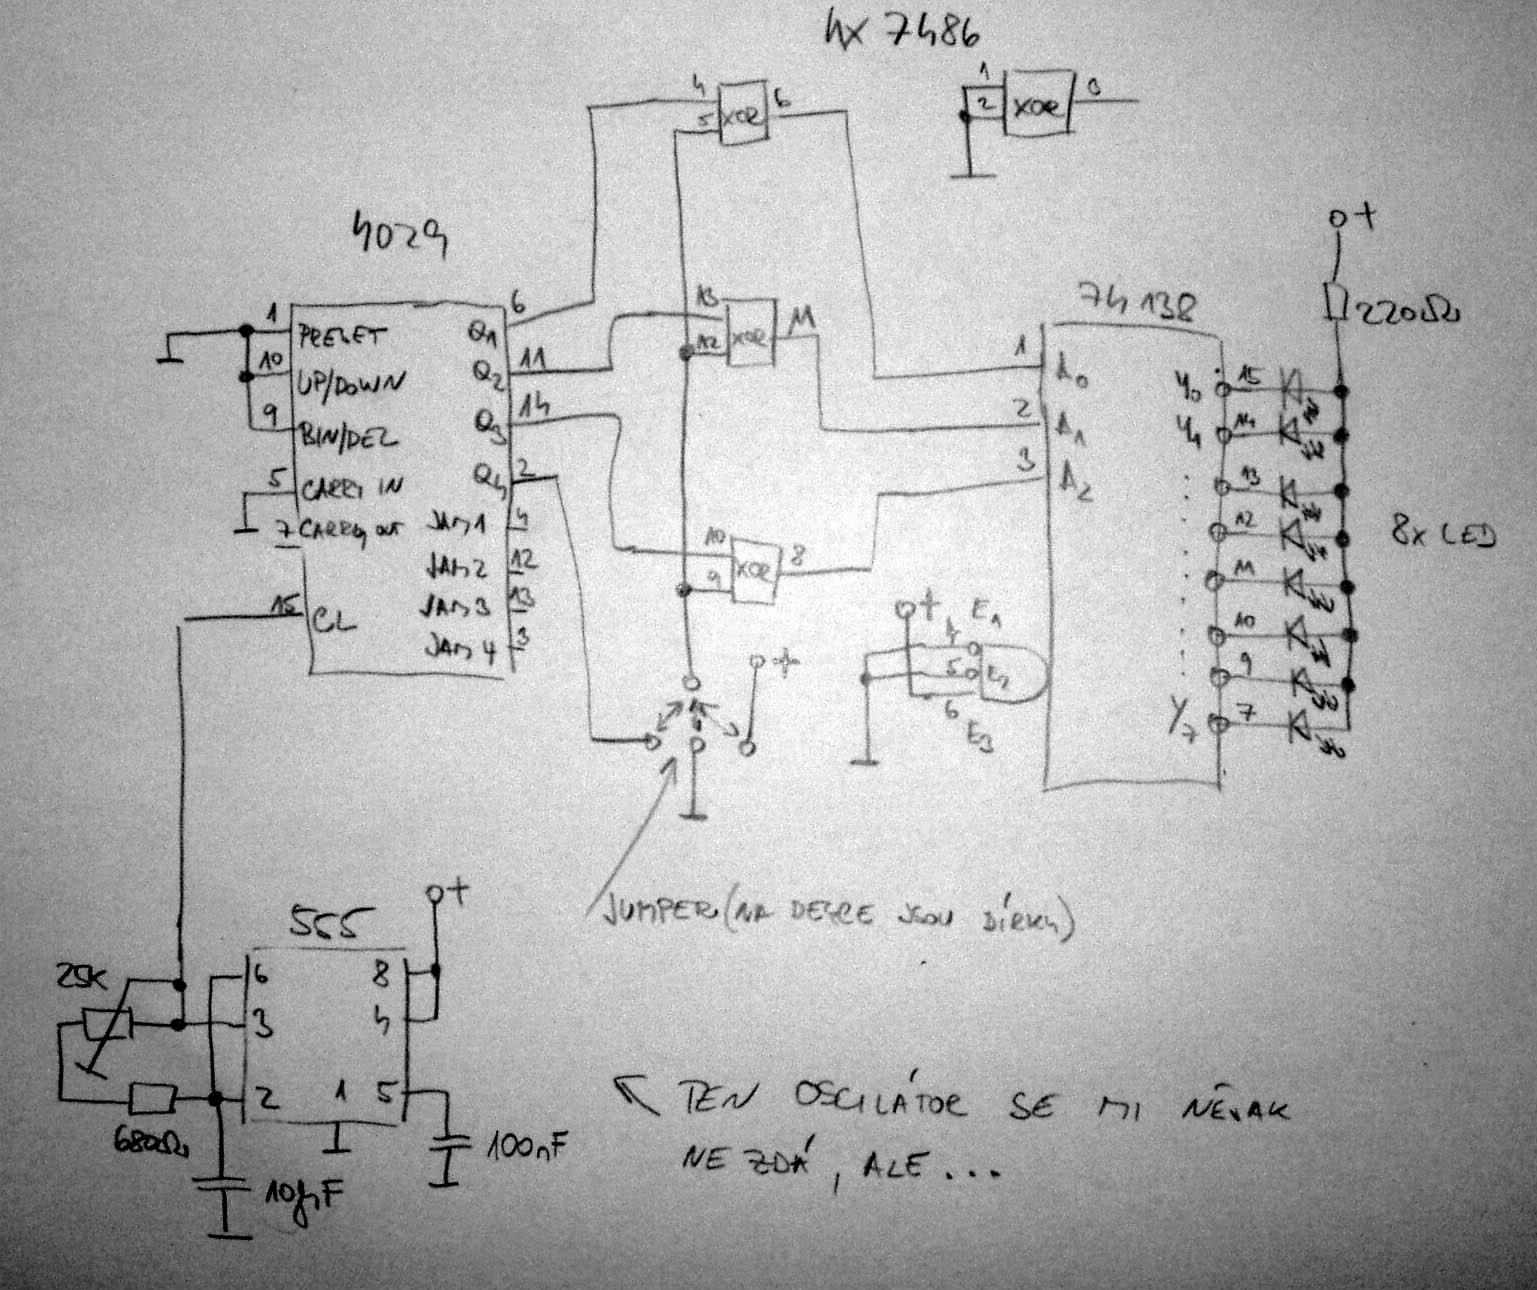 4x 7486
4 XOR 6
5
1 XOR 3
2
4029
1 PRESET Q1 6
10 UP/DOWN Q2 11
9 BIN/DEC Q3 14
5 CARRY IN Q4 2
7 CARRY OUT JAM1 4
JAM2 12
JAM3 13
JAM4 3
15 CL
13 XOR 11
12
10 XOR 8
9
+
74138
1 A0
2 A1
3 A2
+ E1
4
5 E2
6
E3
Y0 15
Y1 14
13
12
11
10
9
Y7 7
+
220Ω
8x LED
JUMPER (NA DESCE JSOU DÍRKY)
555
+
25K
6 8
3 4
2 1 5
680Ω
10µF
100nF
TEN OSCILÁTOR SE MI NĚJAK
NEZDÁ, ALE...